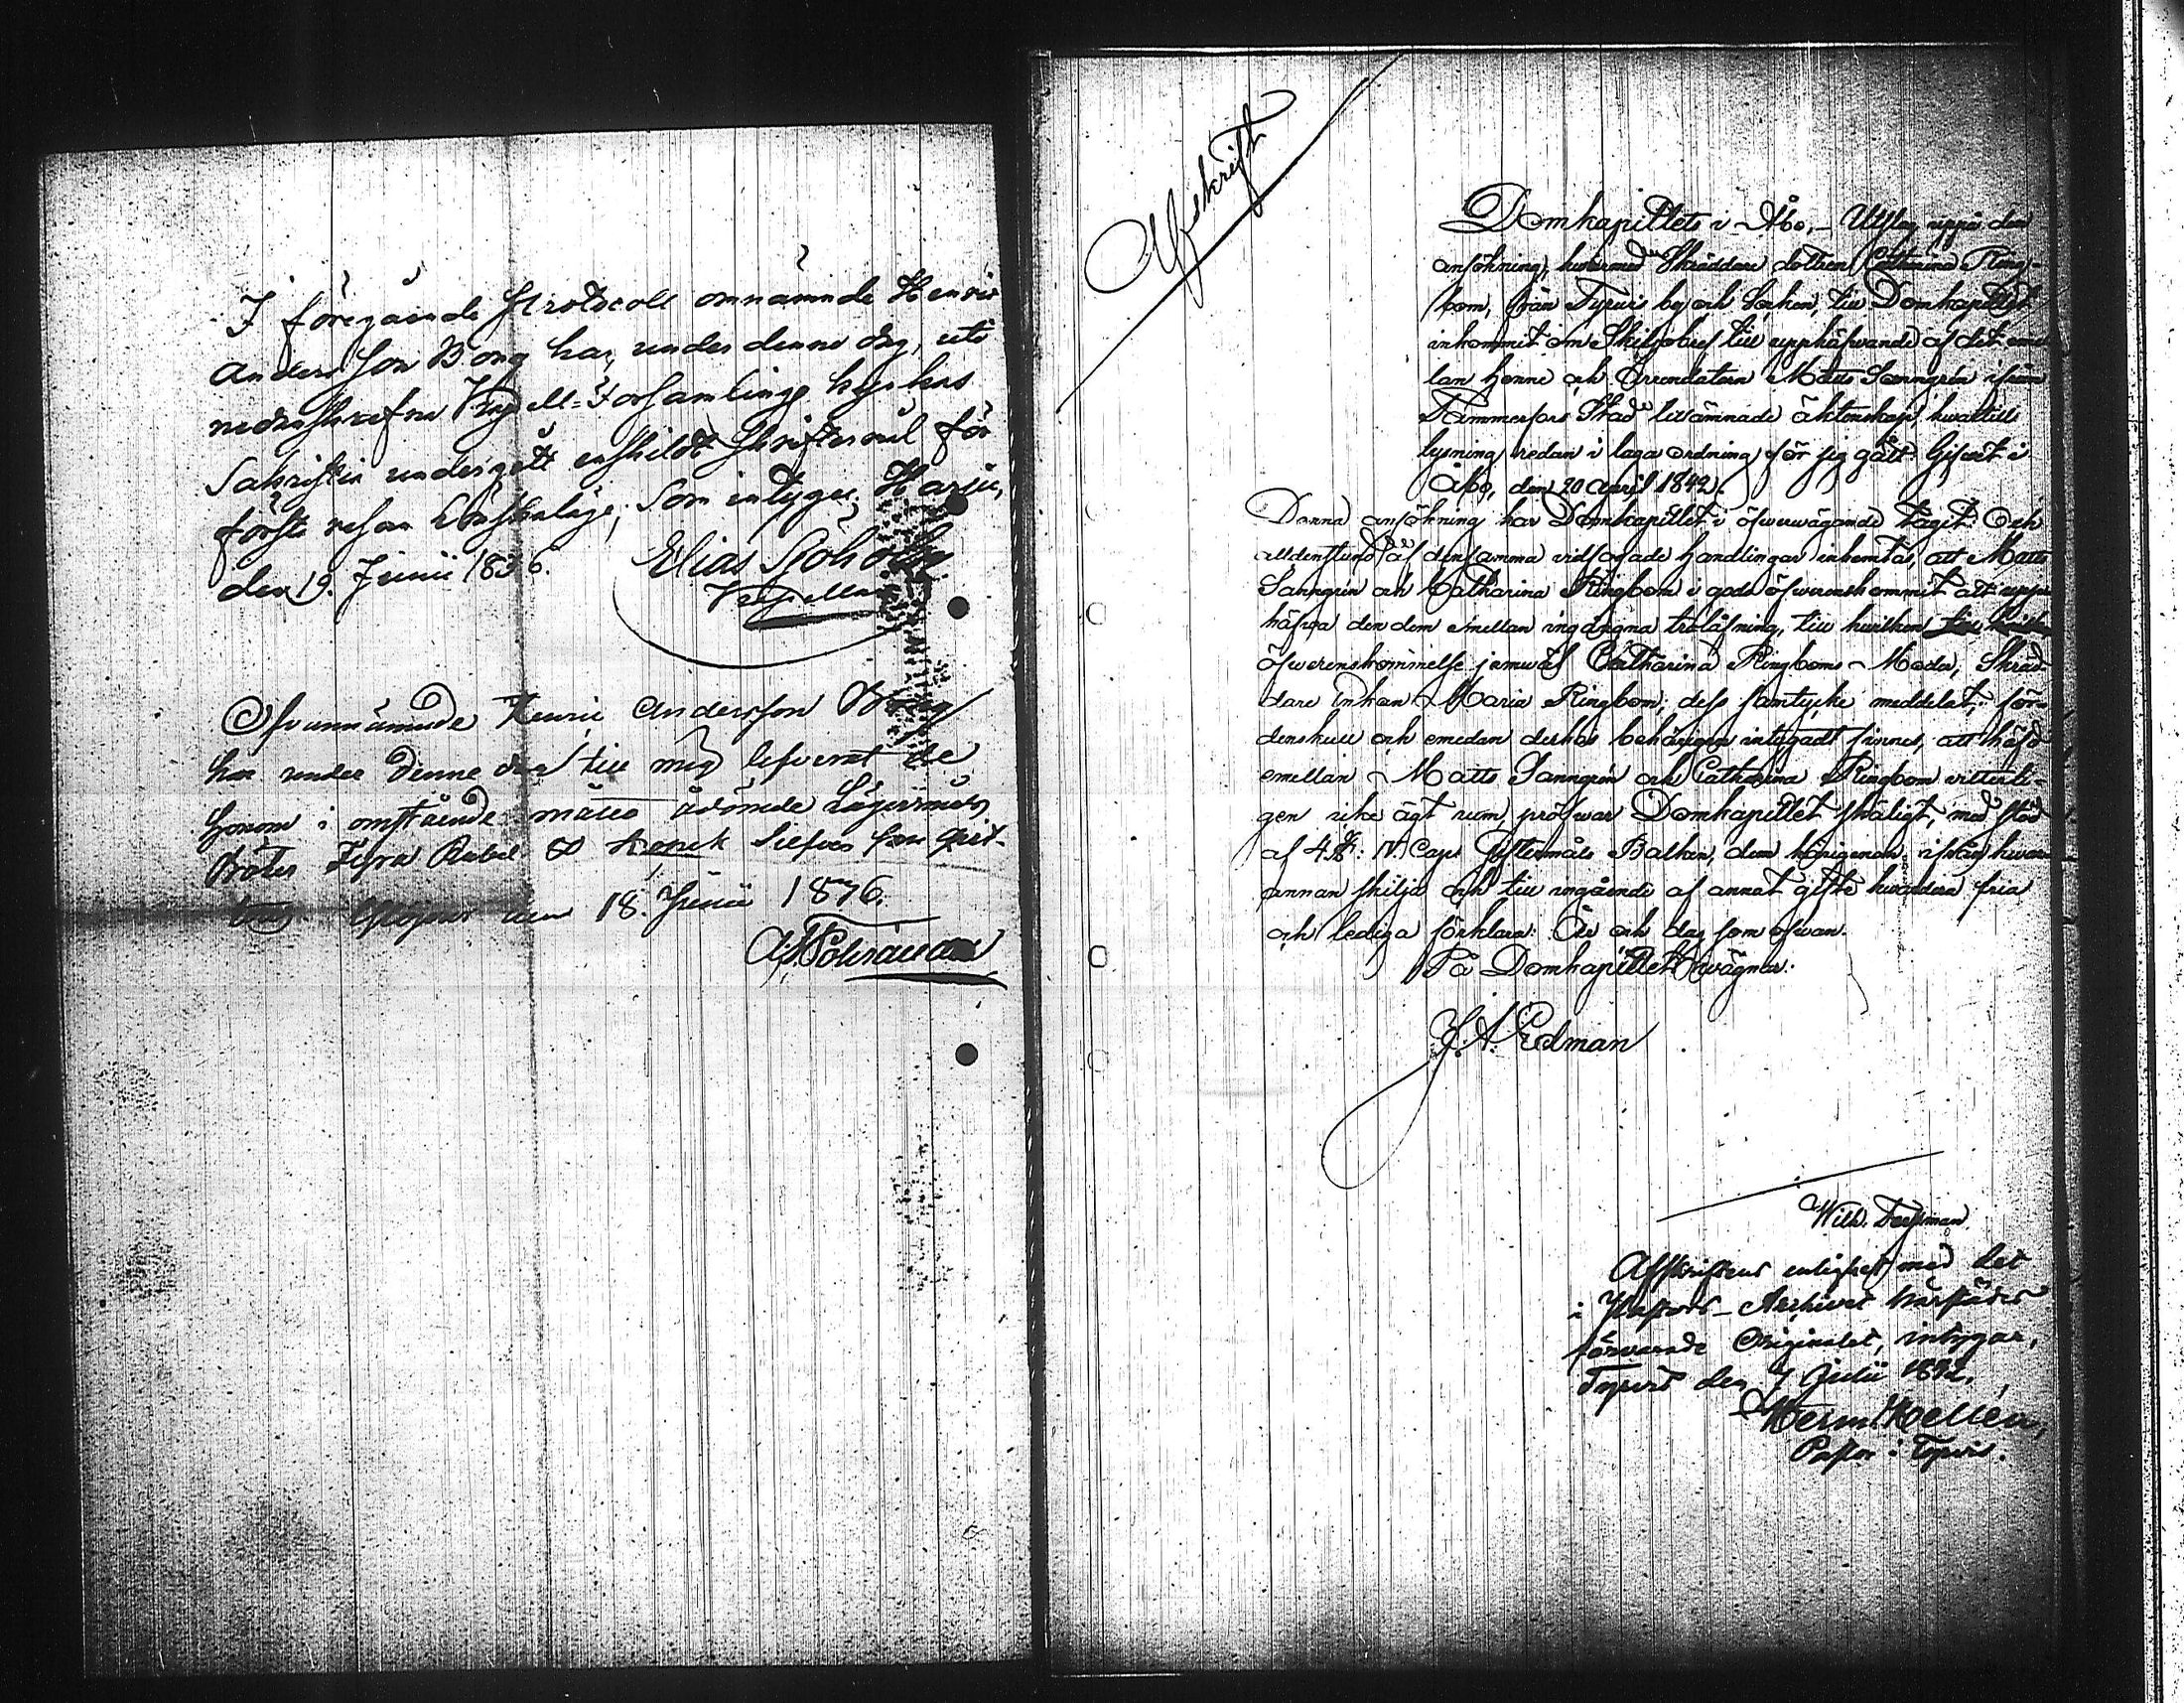 I föregående Protocoll omnämnde Henric
Andersson Bong har, under denne dag, uti
nedanskrefne Kapell-Församlings kyrkas
Sakristia undergått enskildt skriftermål för
första resan Lönskaläge; som intygar, Harju,
den 19. Junii 1836.
Elias
Ofvannämnde Henric Andersson Bong
har under denne dag till mig lefverat de
honom i omstående måtto ådömde Lägersmåls
Böter Fyra Rubel 80 kopek Silfver som qvit-
teras. den 18. Junii 1836.
Afskrift
Domkapitlets i Åbo, Utslag uppå den
ansökning, hwarmed Skräddare dottren Catharina Ring-
bom, från Tyrvis by och Socken, till Domkapitlet
inkommit om Skiljobref till upphäfwande af det emel
lan henne och Arrendatorn Matts Sanngrén ifrån
Tammerfors Stad tillämnade äktenskap, hwartill
lysning redan i laga ordning för sig gått. Gifwet i
Åbo, den 20 April 1842.
Denna ansökning har Domkapitlet i öfwerwägande tagit. Och
alldenstund af densamma vidfogade handlingar inhemtas, att Matts
Sanngrén och Catharina Ringbom i godo öfwerenskommit att upp-
häfwa den dem emellan ingångna trolofning, till hwilken
öfwerenskommelse jemwäl Catharina Ringboms Moder, Skräd-
dare Enkan Maria Ringbom, dess samtycke meddelat; för-
denskull och emedan derhos behörigen intygadt finnes, att häfd
emellan Matts Sanngrén och Catharina Ringbom vitterli-
gen icke ägt rum, pröfwar Domkapitlet skäligt, med stöd
af 4 §: IV Cap: Giftermåls Balken, dem härigenom ifrån hwar-
annan skilja och till ingående af annat gifte hwardera fria
och lediga förklara. År och dag som ofwan.
På Domkapitlets wägnar.
J. A. Edman
Wilh.
Afskriftens enlighet med det
i Pastors-Archivet härstädes
förvarade Originalet, intygar,
Tyrvis den 7 Julii 1842.
Herm. Hellén,
Pastor i Tyrvis.